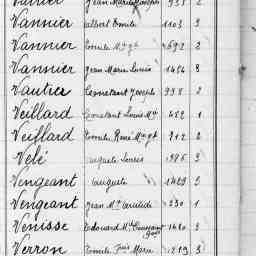 Vannier Jean Marie Joseph 935 2
Vannier Albert Emile 1103 3
Vannier Emile Mie 692 2
Vannier Jean Marie Louis 1484 3
Vautier Constant Joseph 998 2
Veillard Constant Louis Mie 1482 1
Veillard Emile René 912 2
Velé Auguste Louis 1985 3
Vengeant Auguste 1429 3
Vengeant Jean Mie 330 1
Venisse Edouard Mie Constant 1480 3
Verron Emile Marie 1219 3